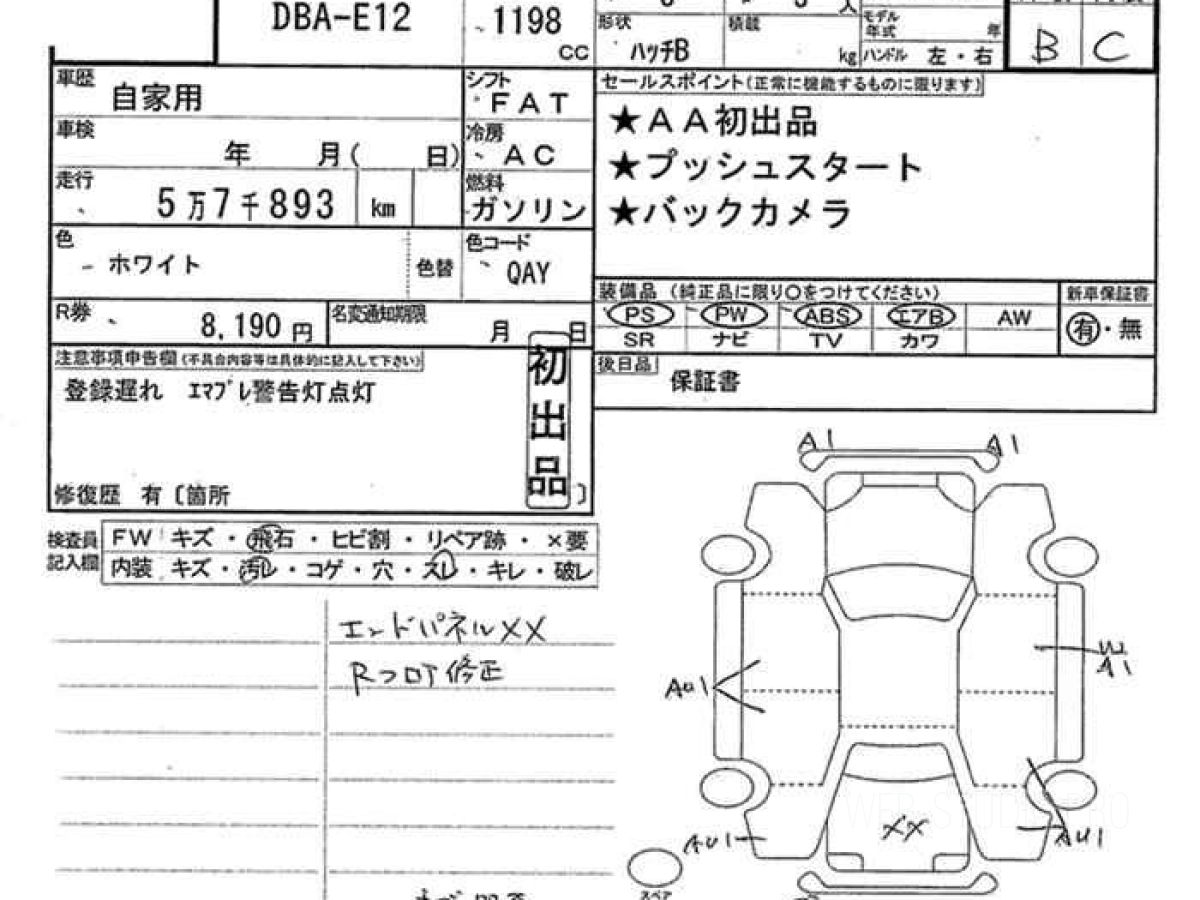 DBA-E12
1198
CC
形状
ハッチB
積載
kg
人
モデル
年式
年
ハンドル 左・右
B C
車歴
自家用
シフト
FAT
車検
年 月( 日)
冷房
AC
走行
5万7千893 km
燃料
ガソリン
色
ホワイト
色替
色コード
QAY
R券
8,190 円
名変通知期限
月 日
セールスポイント(正常に機能するものに限ります)
★AA初出品
★プッシュスタート
★バックカメラ
装備品 (純正品に限り○をつけてください)
新車保証書
PS PW ABS エアB AW
有・無
SR ナビ TV カワ
後日品
保証書
注意事項申告欄(不具合内容等は具体的に記入して下さい)
登録遅れ エマブレ警告灯点灯
初出品
修復歴 有〔箇所 〕
検査員
記入欄
FW キズ・飛石・ヒビ割・リペア跡・×要
内装 キズ・汚レ・コゲ・穴・スレ・キレ・破レ
エンドパネルXX
Rフロア修正
A1 A1
AU1
W
A1
AU1
XX
AU1
スペア